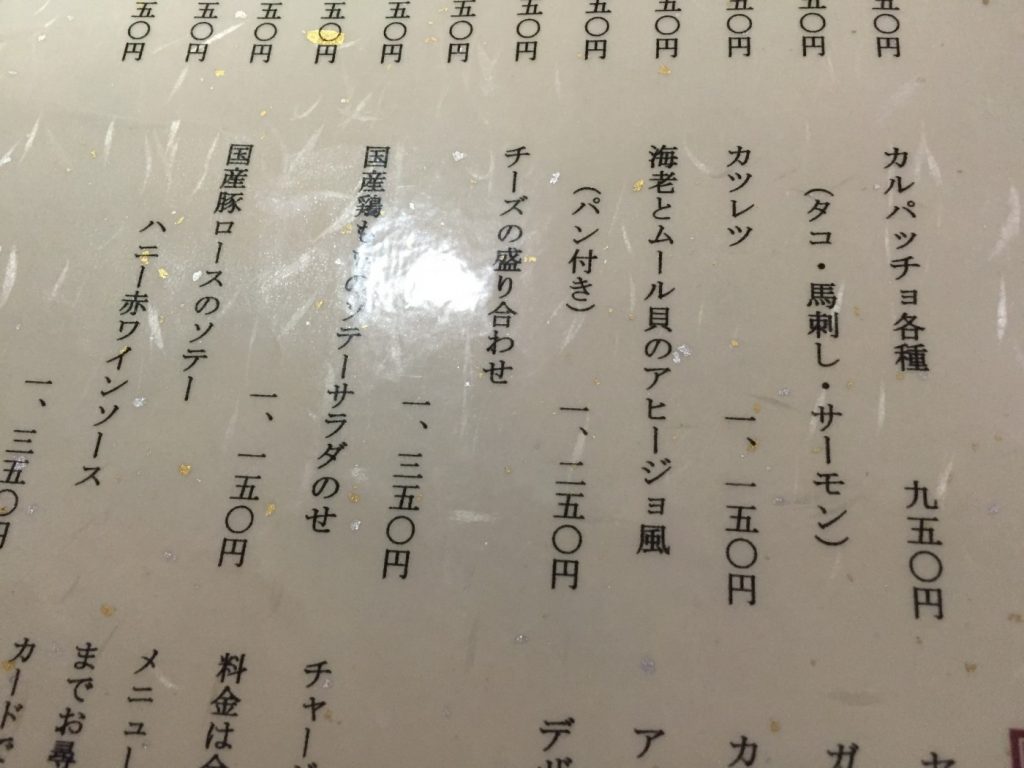 五〇円
五〇円
五〇円
五〇円
五〇円
五〇円
五〇円
五〇円
五〇円
五〇円
五〇円
五〇円
カルパッチョ各種 九五〇円
(タコ・馬刺し・サーモン)
カツレツ 一、一五〇円
海老とムール貝のアヒージョ風
(パン付き) 一、二五〇円
チーズの盛り合わせ
一、三五〇円
国産鶏も のソテーサラダのせ
一、一五〇円
国産豚ロースのソテー
ハニー赤ワインソース
一、三五〇円
ガ
カ
ア
デザ
チャー
料金は
メニュー
までお尋
カードで